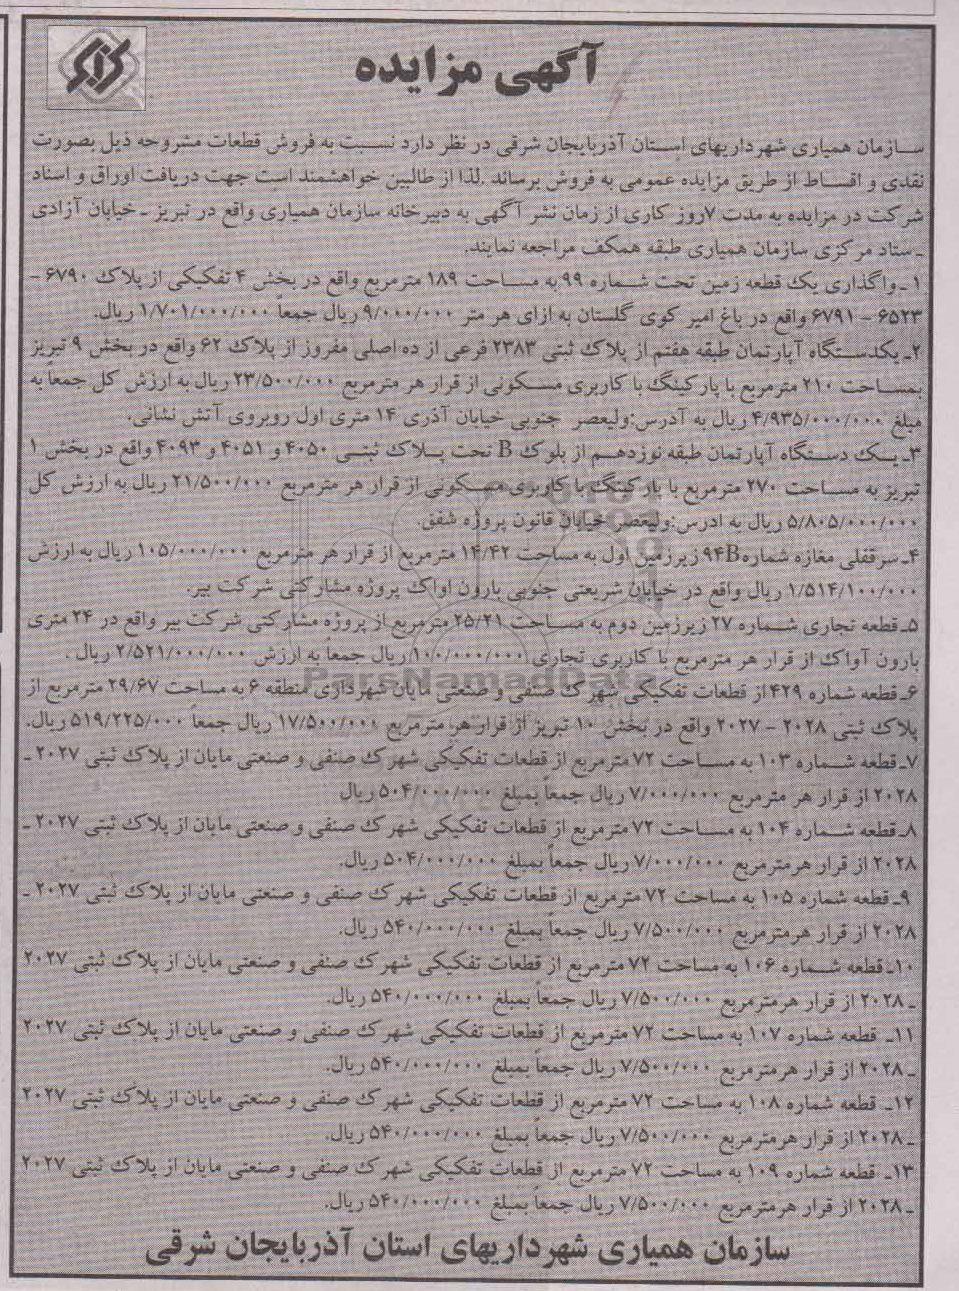 آگهی مزایده
سازمان همیاری شهرداریهای استان آذربایجان شرقی در نظر دارد نسبت به فروش قطعات مشروحه ذیل بصورت
نقدی و اقساط از طریق مزایده عمومی به فروش برساند .لذا از طالبین خواهشمند است جهت دریافت اوراق و اسناد
شرکت در مزایده به مدت ۷روز کاری از زمان نشر آگهی به دبیرخانه سازمان همیاری واقع در تبریز ـ خیابان آزادی
ـ ستاد مرکزی سازمان همیاری طبقه همکف مراجعه نمایند.
۱ ـ واگذاری یک قطعه زمین تحت شماره ۹۹ به مساحت ۱۸۹ مترمربع واقع در بخش ۴ تفکیکی از پلاک ۶۷۹۰ –
۶۵۲۳ – ۶۷۹۱ واقع در باغ امیر کوی گلستان به ازای هر متر ۹/۰۰۰/۰۰۰ ریال جمعاً ۱/۷۰۱/۰۰۰/۰۰۰ ریال.
۲ـ یکدستگاه آپارتمان طبقه هفتم از پلاک ثبتی ۲۳۸۳ فرعی از ده اصلی مفروز از پلاک ۶۲ واقع در بخش ۹ تبریز
بمساحت ۲۱۰ مترمربع با پارکینگ با کاربری مسکونی از قرار هر مترمربع ۲۳/۵۰۰/۰۰۰ ریال به ارزش کل جمعاً به
مبلغ ۴/۹۳۵/۰۰۰/۰۰۰ ریال به آدرس:ولیعصر جنوبی خیابان آذری ۱۴ متری اول روبروی آتش نشانی.
۳ـ یک دستگاه آپارتمان طبقه نوزدهم از بلوک B تحت پلاک ثبتی ۴۰۵۰ و ۴۰۵۱ و ۴۰۹۳ واقع در بخش ۱
تبریز به مساحت ۲۷۰ مترمربع با پارکینگ با کاربری مسکونی از قرار هر مترمربع ۲۱/۵۰۰/۰۰۰ ریال به ارزش کل
۵/۸۰۵/۰۰۰/۰۰۰ ریال به ادرس:ولیعصر خیابان قانون پروژه شفق.
۴ـ سرقفلی مغازه شماره۹۴B زیرزمین اول به مساحت ۱۴/۴۲ مترمربع از قرار هر مترمربع ۱۰۵/۰۰۰/۰۰۰ ریال به ارزش
۱/۵۱۴/۱۰۰/۰۰۰ ریال واقع در خیابان شریعتی جنوبی بارون اواک پروژه مشارکتی شرکت بیر.
۵ـ قطعه تجاری شماره ۲۷ زیرزمین دوم به مساحت ۲۵/۲۱ مترمربع از پروژه مشارکتی شرکت بیر واقع در ۲۴ متری
بارون آواک از قرار هر مترمربع با کاربری تجاری ۱۰۰/۰۰۰/۰۰۰ ریال جمعاً به ارزش ۲/۵۲۱/۰۰۰/۰۰۰ ریال .
ParsNamadData
۶ـ قطعه شماره ۴۲۹ از قطعات تفکیکی شهرک صنفی و صنعتی مایان شهرداری منطقه ۶ به مساحت ۲۹/۶۷ مترمربع از
پلاک ثبتی ۲۰۲۸ – ۲۰۲۷ واقع در بخش ۱۰ تبریز از قرار هر مترمربع ۱۷/۵۰۰/۰۰۰ ریال جمعاً ۵۱۹/۲۲۵/۰۰۰ ریال.
۷ـ قطعه شماره ۱۰۳ به مساحت ۷۲ مترمربع از قطعات تفکیکی شهرک صنفی و صنعتی مایان از پلاک ثبتی ۲۰۲۷ ـ
۲۰۲۸ از قرار هر مترمربع ۷/۰۰۰/۰۰۰ ریال جمعاً بمبلغ ۵۰۴/۰۰۰/۰۰۰ ریال
۸ـ قطعه شماره ۱۰۴ به مساحت ۷۲ مترمربع از قطعات تفکیکی شهرک صنفی و صنعتی مایان از پلاک ثبتی ۲۰۲۷ ـ
۲۰۲۸ از قرار هرمترمربع ۷/۰۰۰/۰۰۰ ریال جمعاً بمبلغ ۵۰۴/۰۰۰/۰۰۰ ریال.
۹ـ قطعه شماره ۱۰۵ به مساحت ۷۲ مترمربع از قطعات تفکیکی شهرک صنفی و صنعتی مایان از پلاک ثبتی ۲۰۲۷ ـ
۲۰۲۸ از قرار هرمترمربع ۷/۵۰۰/۰۰۰ ریال جمعاً بمبلغ ۵۴۰/۰۰۰/۰۰۰ ریال.
۱۰ـ قطعه شماره ۱۰۶ به مساحت ۷۲ مترمربع از قطعات تفکیکی شهرک صنفی و صنعتی مایان از پلاک ثبتی ۲۰۲۷
ـ ۲۰۲۸ از قرار هرمترمربع ۷/۵۰۰/۰۰۰ ریال جمعاً بمبلغ ۵۴۰/۰۰۰/۰۰۰ ریال.
۱۱ـ قطعه شماره ۱۰۷ به مساحت ۷۲ مترمربع از قطعات تفکیکی شهرک صنفی و صنعتی مایان از پلاک ثبتی ۲۰۲۷
ـ ۲۰۲۸ از قرار هرمترمربع ۷/۵۰۰/۰۰۰ ریال جمعاً بمبلغ ۵۴۰/۰۰۰/۰۰۰ ریال.
۱۲ـ قطعه شماره ۱۰۸ به مساحت ۷۲ مترمربع از قطعات تفکیکی شهرک صنفی و صنعتی مایان از پلاک ثبتی ۲۰۲۷
ـ ۲۰۲۸ از قرار هرمترمربع ۷/۵۰۰/۰۰۰ ریال جمعاً بمبلغ ۵۴۰/۰۰۰/۰۰۰ ریال.
۱۳ـ قطعه شماره ۱۰۹ به مساحت ۷۲ مترمربع از قطعات تفکیکی شهرک صنفی و صنعتی مایان از پلاک ثبتی ۲۰۲۷
ـ ۲۰۲۸ از قرار هرمترمربع ۷/۵۰۰/۰۰۰ ریال جمعاً بمبلغ ۵۴۰/۰۰۰/۰۰۰ ریال.
سازمان همیاری شهرداریهای استان آذربایجان شرقی